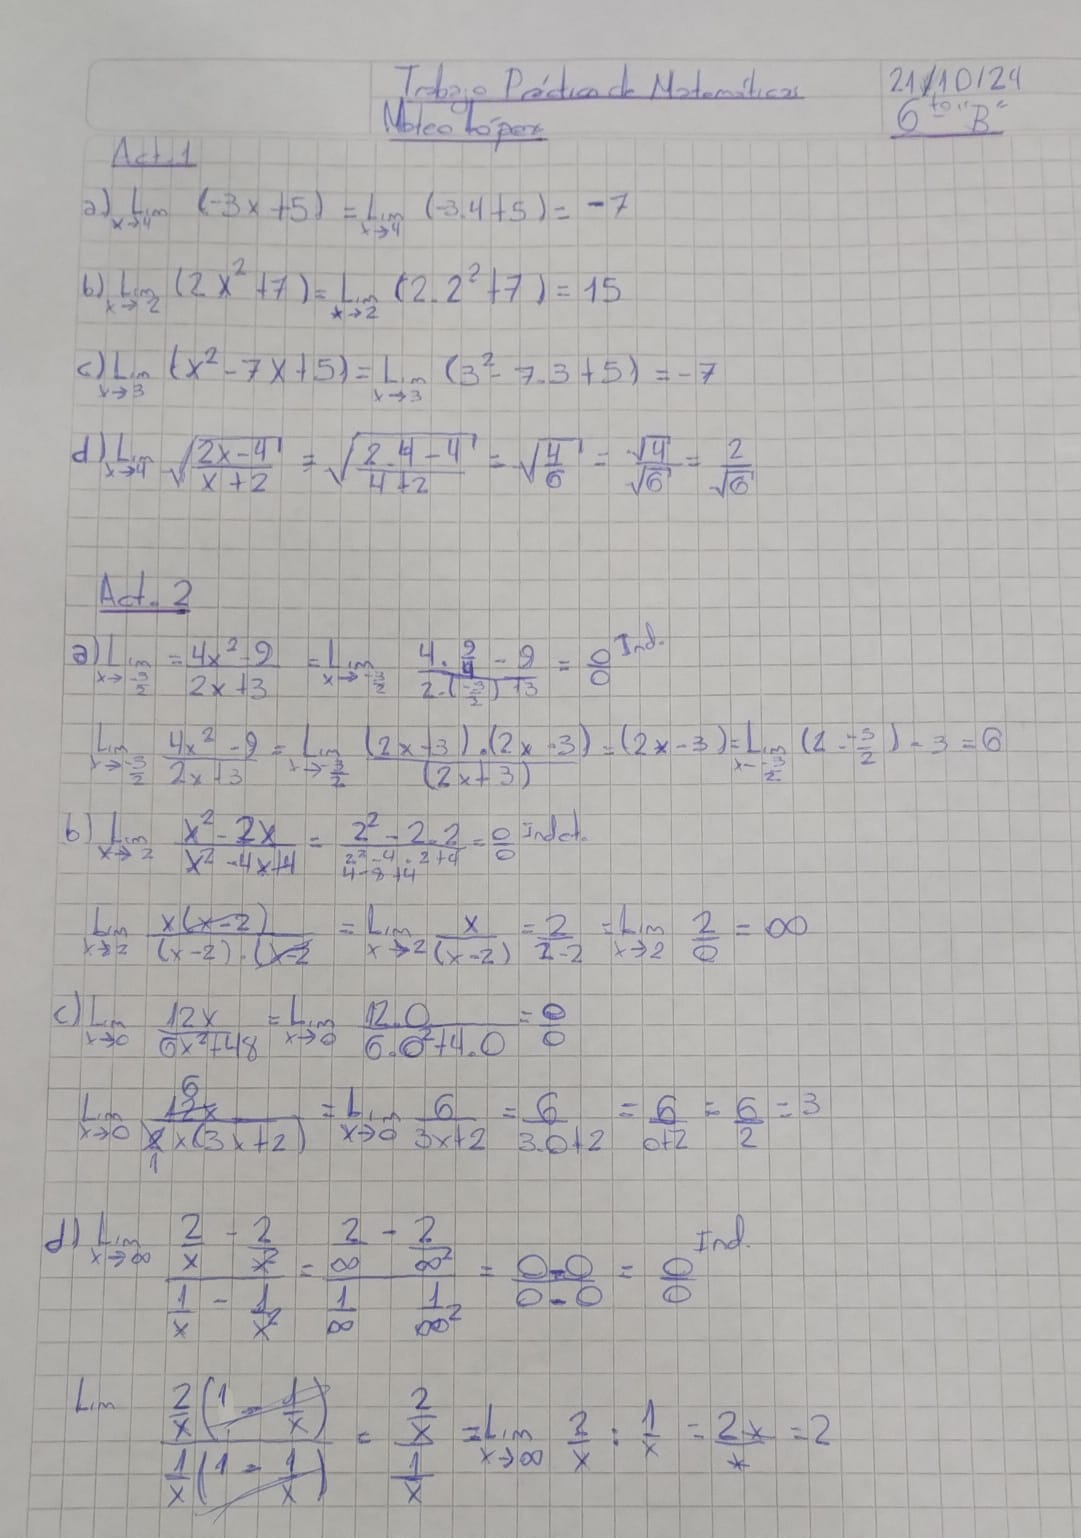 Trabajo Práctico de Matemáticas 21/10/24
Mateo López 6to "B"
Act. 1
a) Lim x→4 (-3x+5) = Lim x→4 (-3.4+5) = -7
b) Lim x→2 (2x²+7) = Lim x→2 (2.2²+7) = 15
c) Lim x→3 (x²-7x+5) = Lim x→3 (3²-7.3+5) = -7
d) Lim x→4 √((2x-4)/(x+2)) = √((2.4-4)/(4+2)) = √(4/6) = √4/√6 = 2/√6
Act. 2
a) Lim x→-3/2 = (4x²-9)/(2x+3) = Lim x→-3/2 (4.9/4-9)/(2.(-3/2)+3) = 0/0 Ind.
Lim x→-3/2 (4x²-9)/(2x+3) = Lim x→-3/2 ((2x+3).(2x-3))/(2x+3) = (2x-3) = Lim x→-3/2 (2.-3/2)-3 = 6
b) Lim x→2 (x²-2x)/(x²-4x+4) = (2²-2.2)/(2²-4.2+4) = 0/0 Indet.
4-8+4
Lim x→2 x(x-2)/((x-2).(x-2)) = Lim x→2 x/(x-2) = 2/(2-2) = Lim x→2 2/0 = ∞
c) Lim x→0 12x/(6x²+48) = Lim x→0 12.0/(6.0²+4.0) = 0/0
Lim x→0 12x 6/(2x(3x+2)) 1 = Lim x→0 6/(3x+2) = 6/(3.0+2) = 6/(0+2) = 6/2 = 3
d) Lim x→∞ (2/x - 2/x²)/(1/x - 1/x²) = (2/∞ - 2/∞²)/(1/∞ 1/∞²) = (0-0)/(0-0) = 0/0 Ind.
Lim (2/x(1-1/x))/(1/x(1-1/x)) = (2/x)/(1/x) = Lim x→∞ 2/x : 1/x = 2x/x = 2